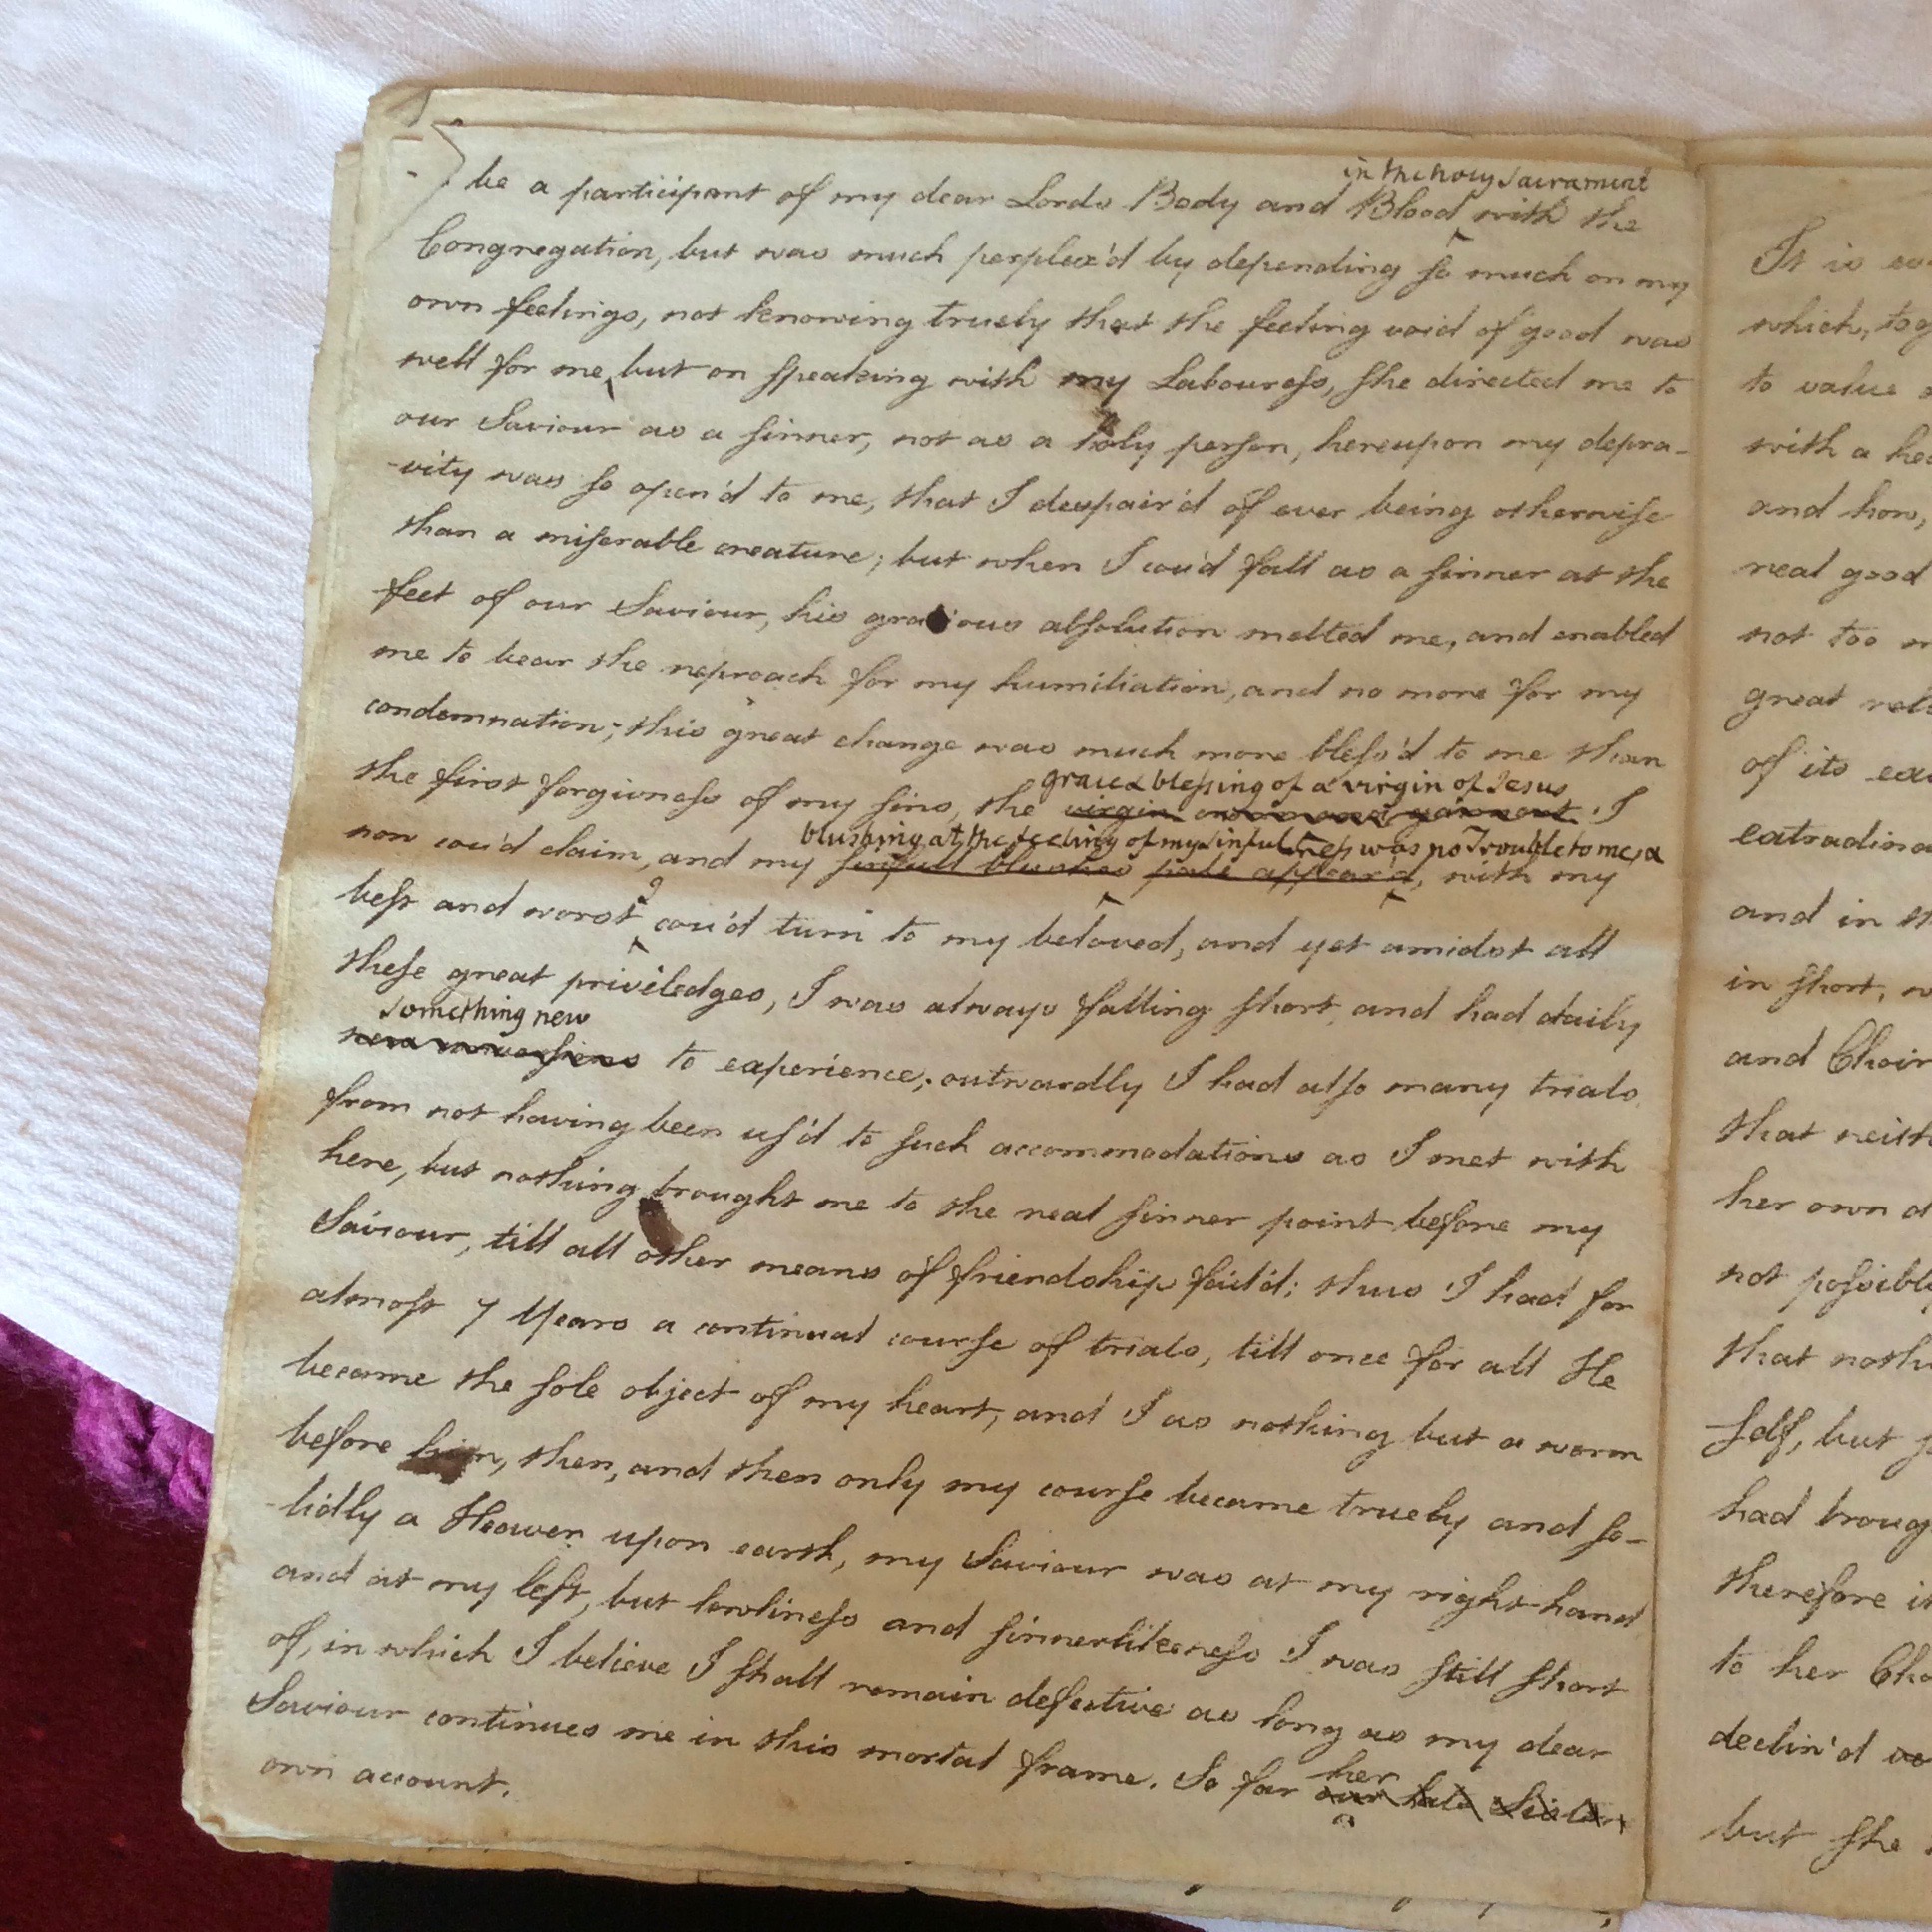 in the holy Sacrament
be a participant of my dear Lords Body and Blood with the
Congregation, but was much perplex'd by depending so much on my
own feelings, not knowing truely that the feeling void of good was
well for me, but on speaking with my Labouress, she directed me to
our Saviour as a sinner, not as a holy person, hereupon my depra-
-vity was so open'd to me, that I despair'd of ever being otherwise
than a miserable creature; but when I cou'd fall as a sinner at the
feet of our Saviour, his gracious absolution melted me, and enabled
me to bear the reproach for my humiliation, and no more for my
condemnation; this great change was much more bless'd to me than
grace & blessing of a virgin of Jesus
the first forgivness of my sins, the virgin garment. I
blushing at the feeling of my sinfulness was no Trouble to me, a
now cou'd claim, and my sinfull blushes pale appear'd, with my
I
best and worst cou'd turn to my beloved, and yet amidst all
these great priviledges, I was always falling short, and had daily
something new
new to experience; outwardly I had also many trials
from not having been us'd to such accommodations as I met with
here, but nothing brought me to the real sinner point before my
Saviour, till all other means of friendship fail'd; thus I had for
almost 7 Years a continual course of trials, till once for all He
became the sole object of my heart, and I as nothing but a worm
before him, then, and then only my course became truely and so-
-lidly a Heaven upon earth, my Saviour was at my right hand
and at my left, but lowliness and sinnerlikeness I was still short
of, in which I believe I shall remain defective as long as my dear
Saviour continues me in this mortal frame. So far our late Sister
her
own account.
It is
which,
to value
with a
and how,
real good
not too
great
of its
and in
in short,
and Choir
that
her own
not possibly
that
self, but
had
therefore
to her
declin'd
but she